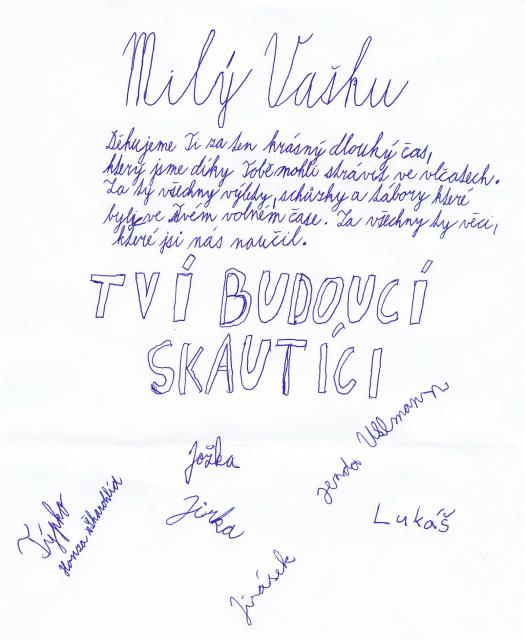 Milý Vašku
Děkujeme Ti za ten krásný dlouhý čas,
který jsme díky Tobě mohli strávit ve vlčatech.
Za ty všechny výlety, schůzky a tábory které
byly ve Tvém volném čase. Za všechny ty věci,
které jsi nás naučil.
TVÍ BUDOUCÍ
SKAUTÍCI
Jenda Ullmann
Jožka
Týpko
Honza
Jirka
Lukáš
Jirásek